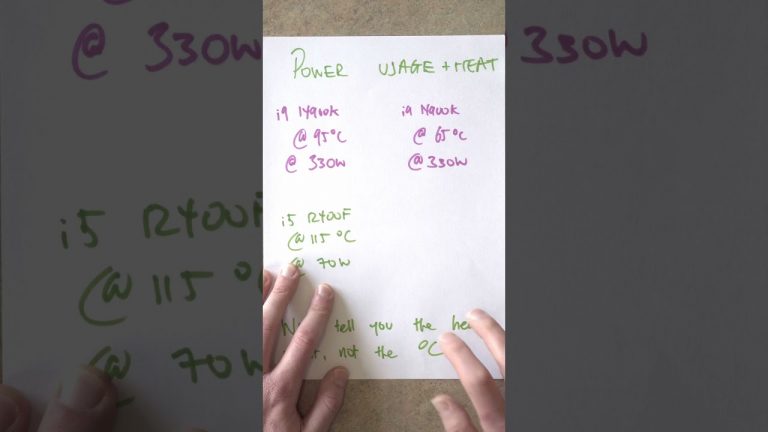 POWER USAGE + HEAT
i9 14900K
@ 95°C
@ 330W
i9 14900K
@ 65°C
@ 330W
i5 12400F
@ 115°C
@ 70W
tell you the
, not the °C